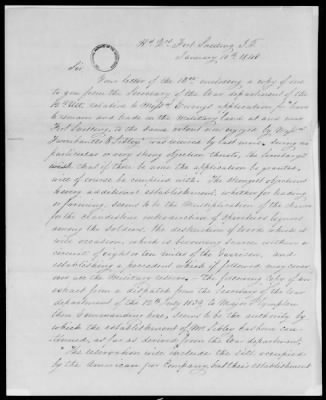 Hd Qrs Fort Snelling, I.T.
January 10th 1840
Sir
Your letter of the 18th enclosing a copy of one
to you from the Secretary of the War department of the
relative to application for leave
to remain and trade on the Military land at and near
Fort Snelling, to the same extent now enjoyed by
& Sibley" was received by last mail. Being no
particular or very strong objection thereto, the
wish that if there be any the application be granted,
will of course be complied with. The strongest objections
to every additional establishment, whether for trading
or farming, seems to be the multiplication of the chances
for the clandestine introduction of spirituous liquors
among the Soldiers, the destruction of wood which it
will occasion, which is becoming scarce within a
circuit of eight or ten miles of the Garrison, and
establishing a precedent which if followed may
the Military reserve. The following Copy of an
extract from a dispatch from the Secretary of the War
department of the 12th July 1839, to Major Plympton
then Commanding here, seems to be the authority by
which the establishment of Mr Sibley has been con-
tinued, as far as derived from the War department.
"The reservation will include the site occupied
by the American fur Company, but their establishment